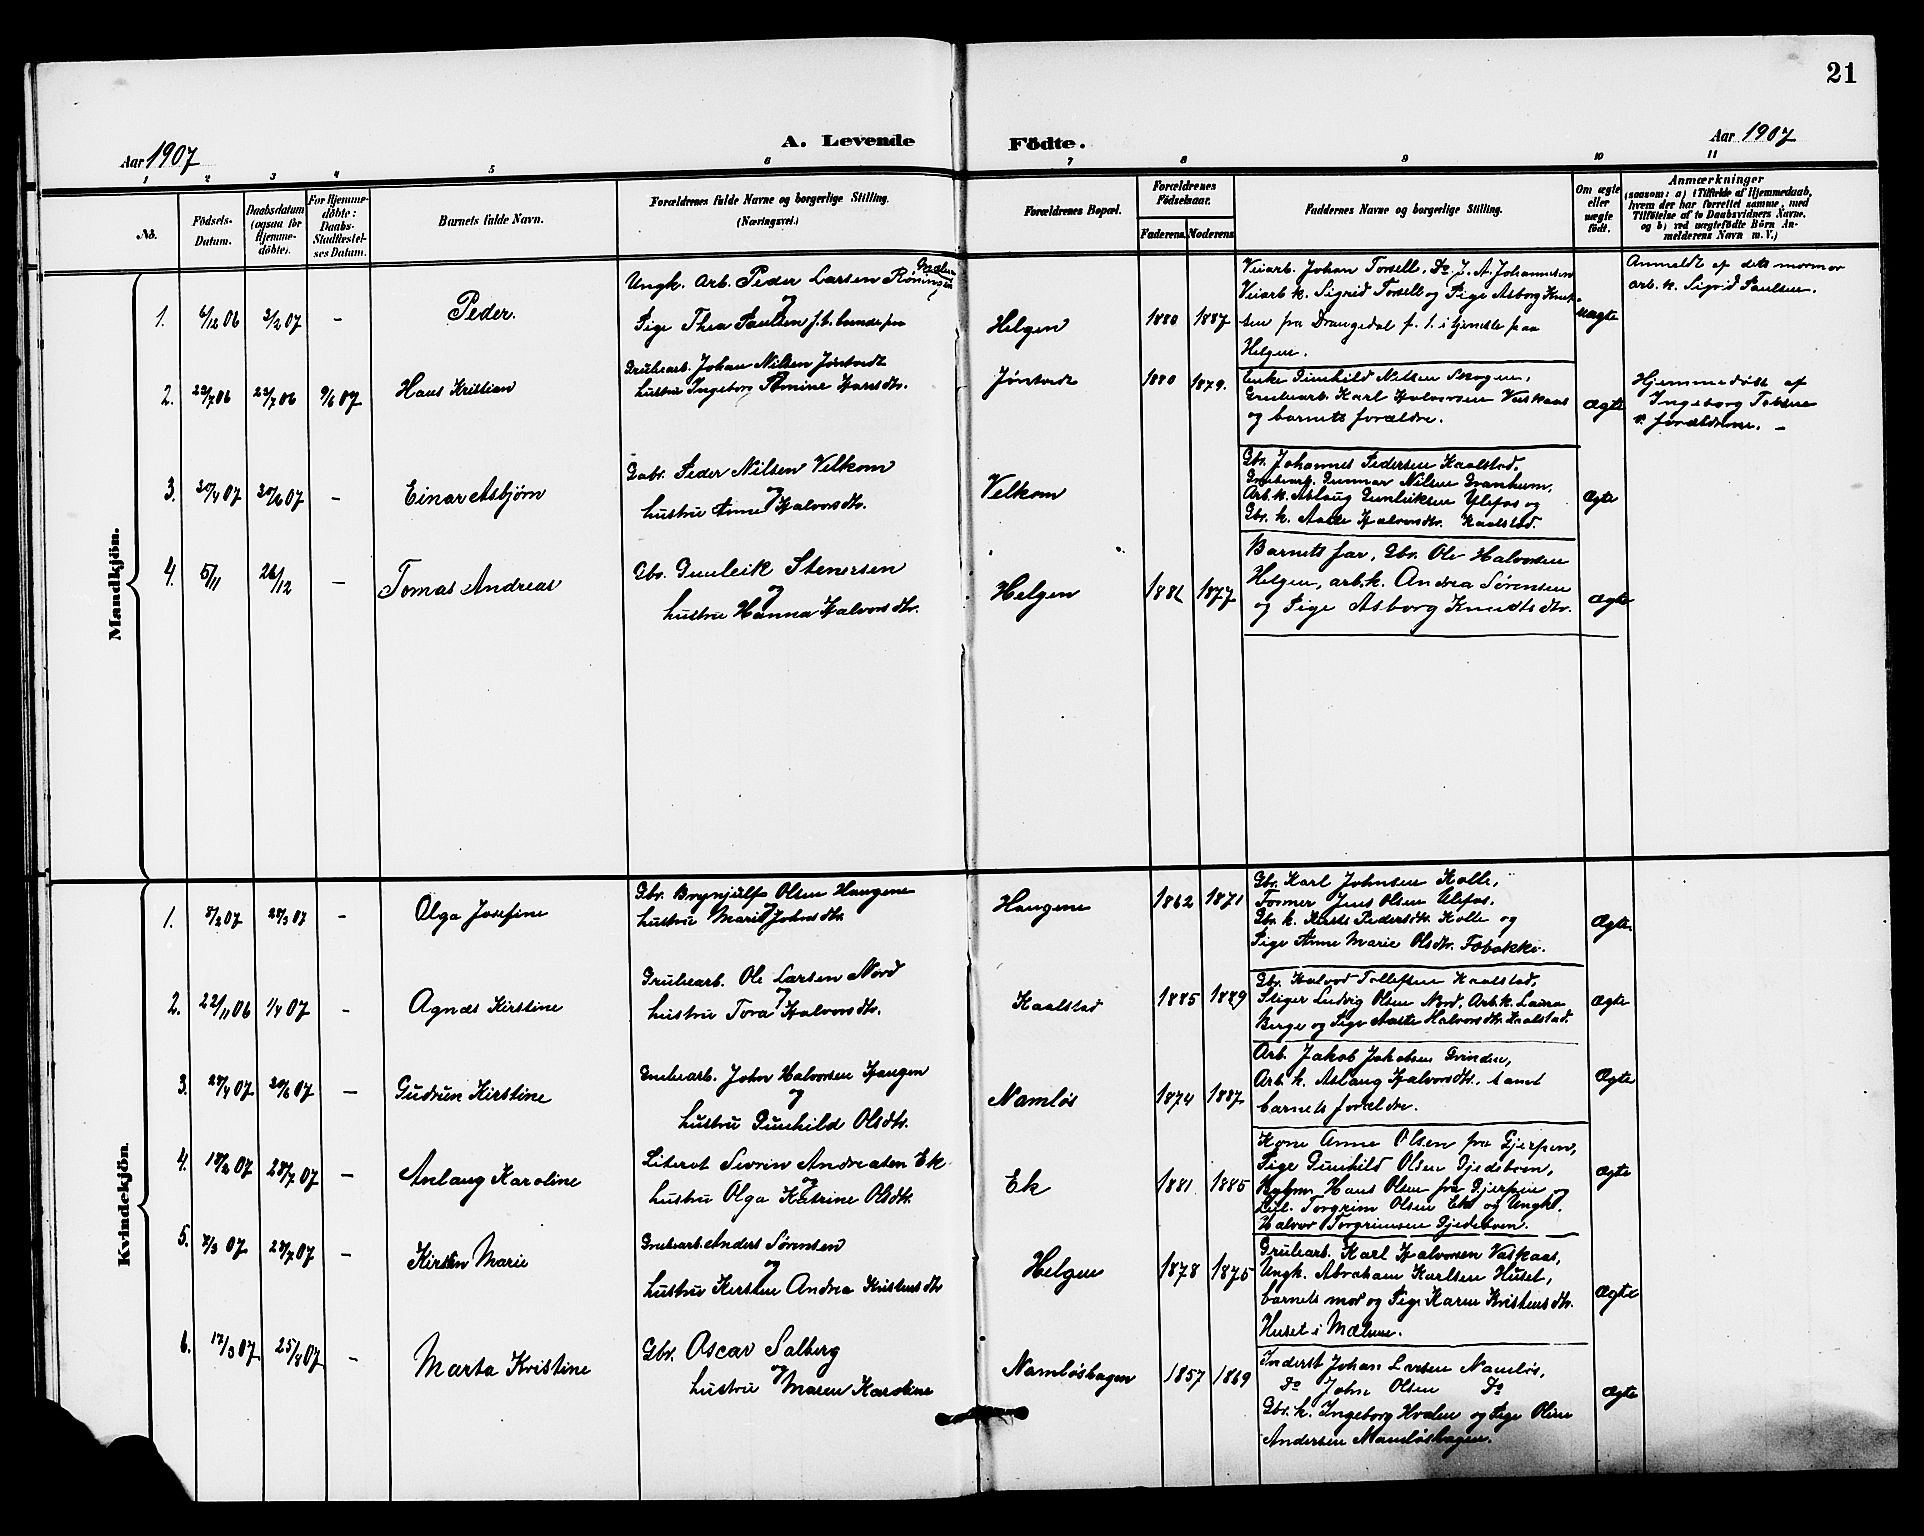 21
Aar 1907
A. Levende
Födte.
Aar 1907
1 2 3 4 5 6 7 8 9 10 11
No.
Födsels-
Datum.
Daabsdatum
(ogsaa for
Hjemme-
döbte).
For Hjemme-
döbte:
Daabs-
Stadfæstel-
ses Datum.
Barnets fulde Navn.
Forældrenes fulde Navne og borgerlige Stilling.
(Næringsvei.)
Forældrenes Bopæl.
Forældrenes
Födselsaar.
Faderens.
Moderens
Faddernes Navne og borgerlige Stilling.
Om ægte
eller
uægte
födt.
Anmærkninger
(saasom: a) i Tilfælde af Hjemmedaab,
hvem der har forrettet samme, med
Tilföielse af to Daabsvidners Navne,
og b) ved uægtefödte Börn An-
melderens Navn m. V.)
Mandkjön.
1.
6/12 06
3/2 07
-
Peder.
Ungk. Arb. Peder Larsen Rønningen
og
Pige Thea Paulsen
Helgen
1880
1887
Veiarb. Johan Torsell, Do J. A. Johannesen
Veiarb. k. Sigrid Torsell og Pige Asborg Knut-
sen fra Drangedal p. t. i tjeneste paa
Helgen.
uægte
Anmeldt af dets mormor
arb. k. Sigrid Paulsen.
2.
22/7 06
23/7 06
9/6 07
Hans Kristian
Grubearb. Johan Nilsen Jøntvedt
og
hustru Ingeborg Hansdtr.
Jøntvedt
1880
1879.
Enke Gunhild Nilsen Skogen,
Grubearb. Karl Halvorsen Vaskaas
og barnets forældre.
Ægte
Hjemmedøbt af
Ingeborg
v. forældrene. -
3.
30/4 07
30/6 07
-
Einar Asbjørn
Gabr. Peder Nilsen Velkom
og
hustru Anne Halvorsdtr.
Velkom
Gbr. Johannes Pedersen Kaalstad,
Grubearb. Gunnar Nilsen Granhum,
Arb. k. Aslaug Gunleiksen Ulefos og
Gbr. k. Aaste Halvorsdtr. Kaalstad.
Ægte
4.
5/11
26/12
-
Tomas Andreas
Gbr. Gunleik Stenersen
og
hustru Hanna Halvorsdtr.
Helgen
1877
Barnets far, Gbr. Ole Halvorsen
Helgen, arb. k. Andrea Sørensen
og Pige Asborg Knudtsdtr.
Ægte
Kvindekjön.
1.
8/2 07
28/3 07
-
Olga Josefine
Gbr. Brynjulf Olsen Haugene
og
hustru Mari Johnsdtr.
Haugene
1862
1871
Gbr. Karl Johnsen Kolle,
Former Jens Olsen Ulefos.
Gbr. k. Kirsti Pedersdtr. Kolle og
Pige Anne Marie Olsdtr. Fæbakke.
Ægte.
2.
22/11 06
1/4 07
-
Agnes Kirstine
Grubearb. Ole Larsen Nord
og
hustru Tora Halvorsdtr.
Kaalstad
1885
1889
Gbr. Halvor Tollefsen Kaalstad,
Stiger Ludvig Olsen Nord, Arb. k. Laura
Berge og Pige Aaste Halvorsdtr. Kaalstad.
Ægte
3.
29/4 07
30/6 07
-
Gudrun Kirstine
Grubearb. John Halvorsen Haugen
og
hustru Gunhild Olsdtr.
Namløs
1874
1887
Arb. Jakob Jakobsen Grinden,
Arb. k. Aslaug Halvorsdtr. samt
barnets forældre.
Ægte
4.
18/2 07
28/7 07
-
Anlaug Karoline
Literat Sevrin Andreasen Ek
og
hustru Olga Katrine Olsdtr.
Ek
1881
1885
Kone Anne Olsen fra Gjerpen,
Pige Gunhild Olsen Gjedeboen,
Hans Olsen fra Gjerpen og
Torgrim Olsen Ek og Ungk.
Halvor Torgrimsen Gjedeboen.
Ægte
5.
7/3 07
28/7 07
-
Kirsten Marie
Grubearb. Anders Sørensen
og
hustru Kersten Andrea Kristensdtr
Helgen
1878
1875
Grubearb. Karl Halvorsen Vaskaas,
Ungk. Abraham Karlsen Huset,
barnets mor og Pige Karen Kristensdtr.
Huset i Mælum.
Ægte
6.
17/3 07
25/8 07
-
Marta Kristine
Gbr. Oscar Solberg
og
hustru Maren Karoline
Namløshagen
1857
1869
Inderst Johan Larsen Namløs,
Do John Olsen Do
Gbr. k. Ingeborg Hvalen og Pige Oline
Andersen Namløshagen.
Ægte